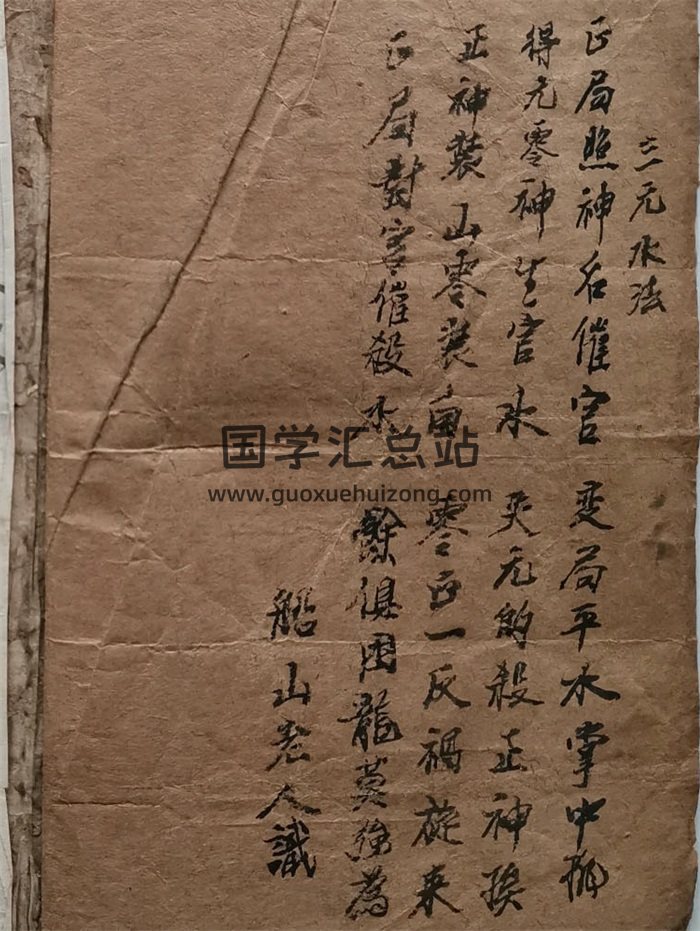 三元水法
正局照神名催官 变局平水掌中
得元零神生官水 失元的殺正神挨
正神裝山零裝向 零正一反禍旋来
正局對宮催殺水 餘俱囚龍莫強為
船山老人識
国学汇总站
www.guoxuehuizong.com